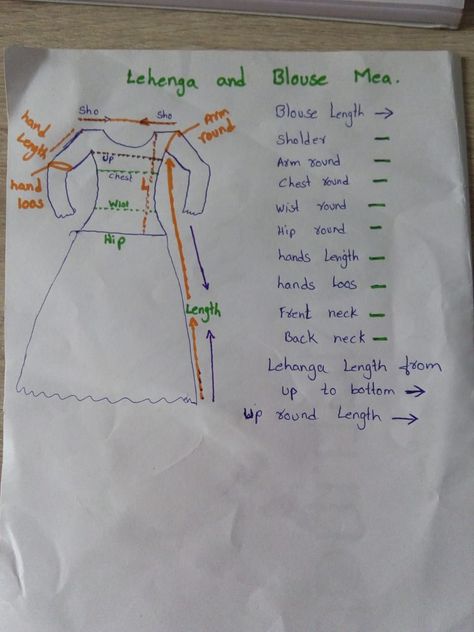 Lehenga and Blouse Mea.
Sho Sho
Arm
round
hand
Length
hand
loos
up
chest
L
Wist
Hip
Length
Blouse Length →
Sholder –
Arm round –
Chest round –
Wist round –
Hip round –
hands Length –
hands Loos –
Frent neck –
Back neck –
Lehanga Length from
up to bottom →
Up round Length →